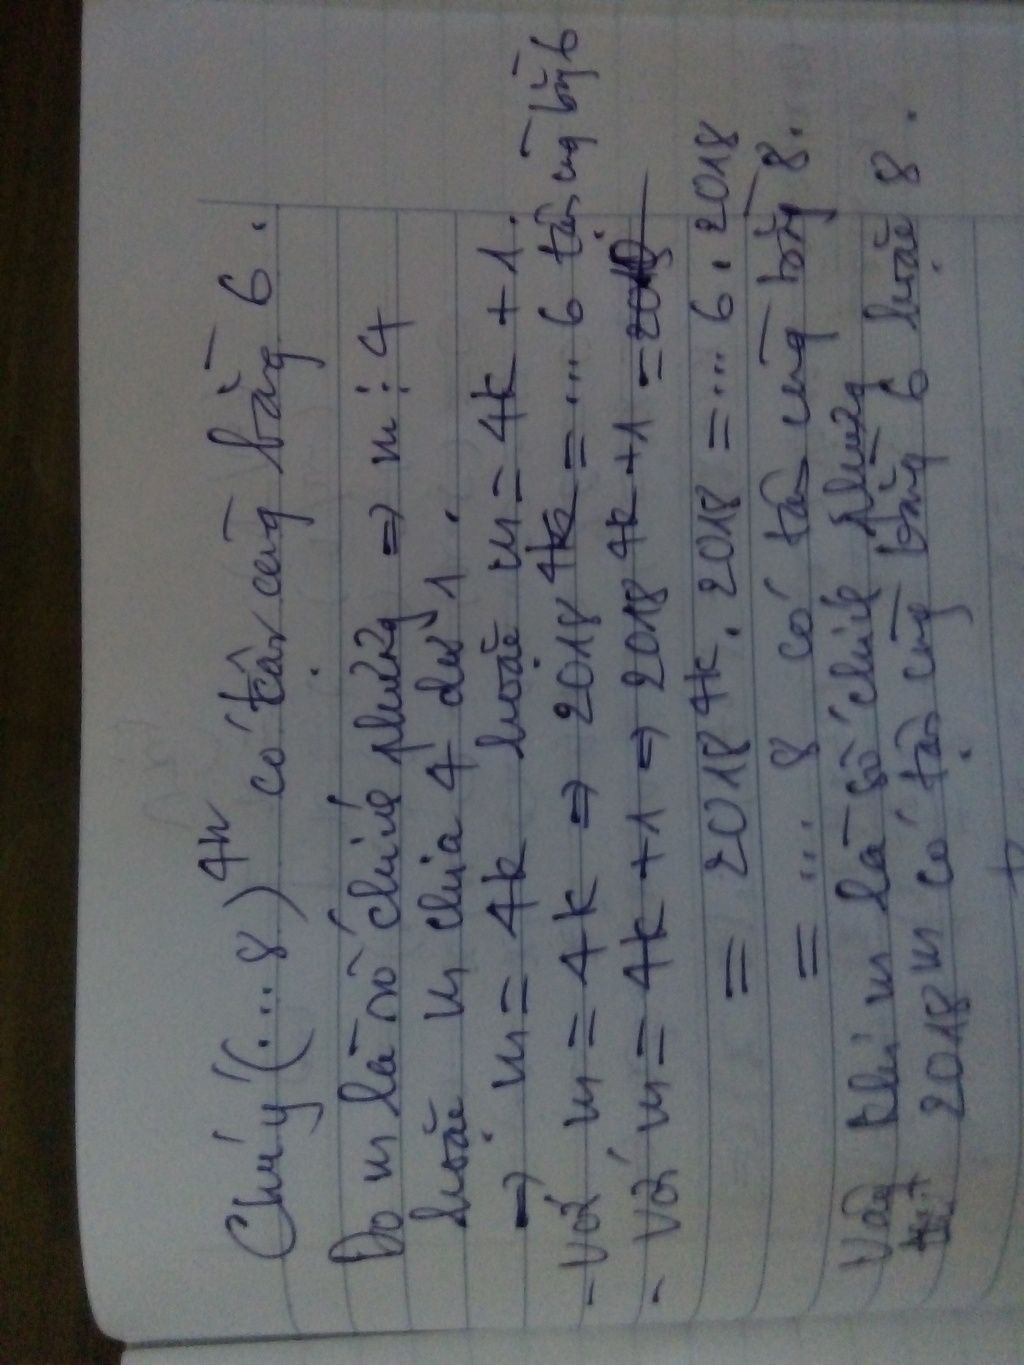 Chú ý (...8)^4n có tận cùng bằng 6.
Do m là số chính phương ⇒ m ⋮ 4
hoặc m chia 4 dư 1.
⇒ m = 4k hoặc m = 4k + 1.
- Với m = 4k ⇒ 2018^4k = ... 6 tận cùng bằng 6
- Với m = 4k + 1 ⇒ 2018^4k + 1 =
= 2018^4k . 2018 = ... 6 . 2018
= ... 8 có tận cùng bằng 8.
Vậy khi m là số chính phương
thì 2018^m có tận cùng bằng 6 hoặc 8.